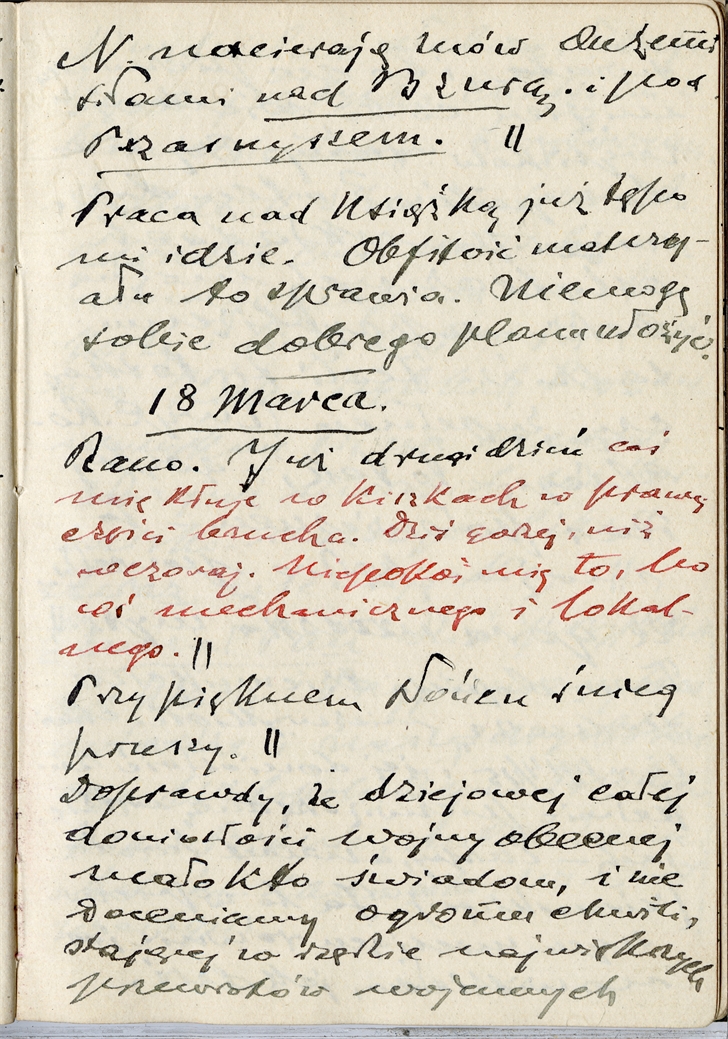 N. nacierają znów dużemi
siłami nad Bzurą. i pod
Przasnyszem. ||
Praca nad Książką już tępo
mi idzie. Obfitość materj-
ału to sprawia. Niemogę
sobie dobrego planu ułożyć.
18 Marca.
Rano. Już drugi dzień coś
mię kłuje w kiszkach w prawej
części brzucha. Dziś gorzej, niż
wczoraj. Niepokoi mię to, bo
coś mechanicznego i lokal-
nego. ||
Przy pięknem słońcu śnieg
prószy. ||
Doprawdy, że dziejowej całej
doniosłości wojny obecnej
mało kto świadom, i nie
doceniamy ogromu chwili,
stającej w rzędzie największych
przewrotów wojennych